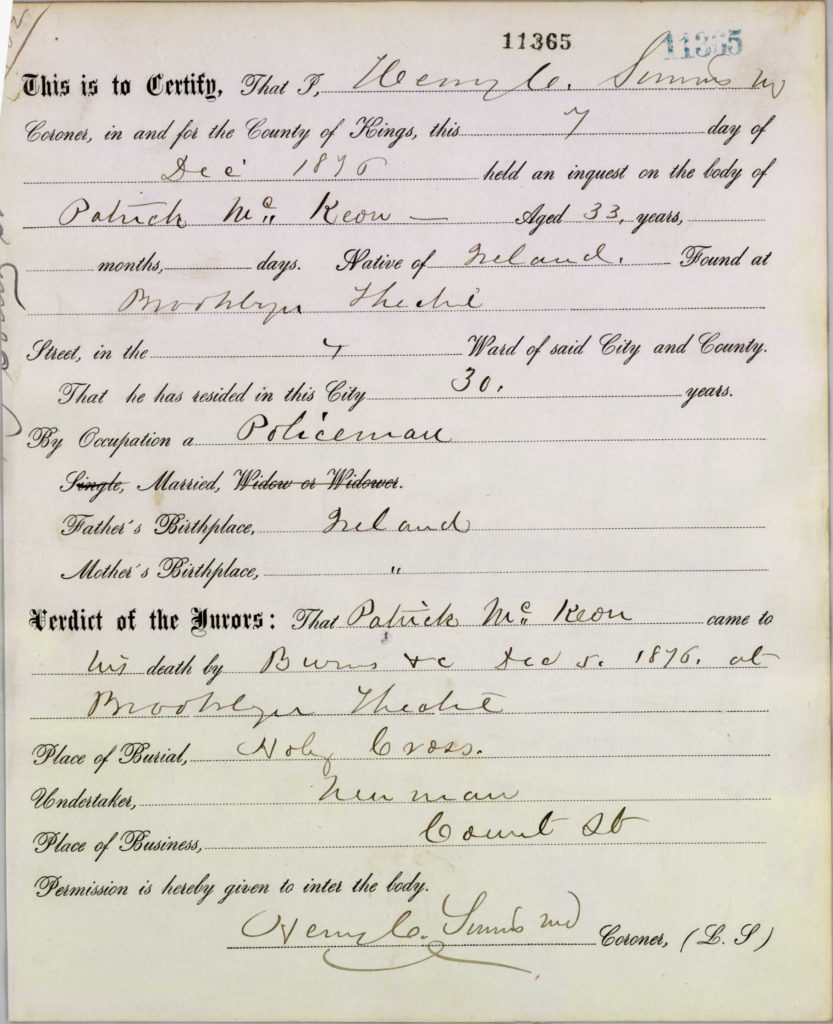 11365 11365
This is to Certify, That I, Henry C. Simms MD
Coroner, in and for the County of Kings, this 7 day of
Dec 1876 held an inquest on the body of
Patrick Mc Keon — Aged 33, years,
months, days. Native of Ireland. Found at
Brooklyn Theatre
Street, in the 4 Ward of said City and County.
That he has resided in this City 30. years.
By Occupation a Policeman
Single, Married, Widow or Widower.
Father's Birthplace, Ireland
Mother's Birthplace, "
Verdict of the Jurors: That Patrick Mc Keon came to
his death by Burns &c Dec 5. 1876. at
Brooklyn Theatre
Place of Burial, Holy Cross.
Undertaker, Newman
Place of Business, Court St
Permission is hereby given to inter the body.
Henry C. Simms MD Coroner, (L. S)